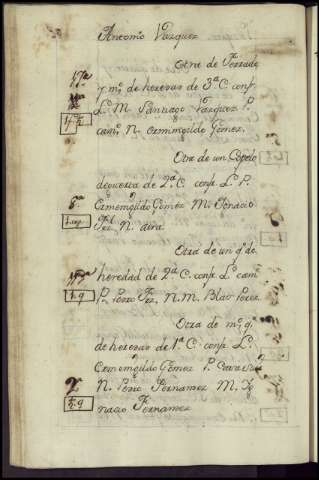 Antonio Vazquez
Otra de Ferrado
y mº de heredad de 3ª C. confª
Lº M. Santiago Vazquez P.
camº N. Ermenegildo Gomez.
Otra de un Copelo
de querta de 2ª C. confª Lº P.
8ª Ermenegildo Gomez M. Ignacio
Frz N.
Otra de un qº de
heredad de 2ª C. confª Lº camº
1 q P. Pedro Frz, N. M. Blas Perez.
Otra de mº qº
de heredad de 1ª C. confª Lº
Ermenegildo Gomez P.
N. Pedro Fernamez M. Yg
nacio Fernamez